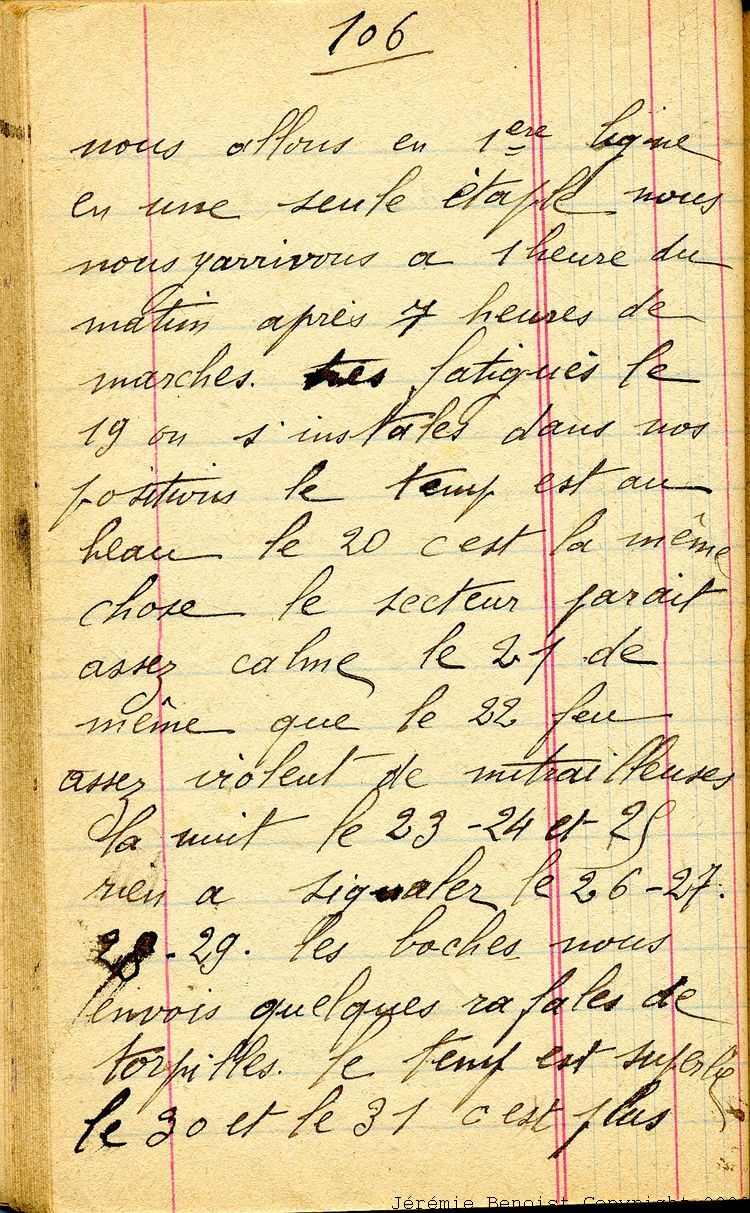 106
nous allons en 1ere ligne
en une seule étaple nous
nous yarrivons a 1 heure du
matin après 7 heures de
marches. tres fatigués le
19 on s'instales dans nos
positions le temp est au
beau le 20 c'est la même
chose le secteur parait
assez calme le 21 de
même que le 22 feu
assez violent de mitrailleuses
la nuit le 23-24 et 25
rien a signaler le 26-27.
28-29. les boches nous
envois quelques rafales de
torpilles. le temp est superbe
le 30 et le 31 c'est plus
Jérémie Benoist Copyright